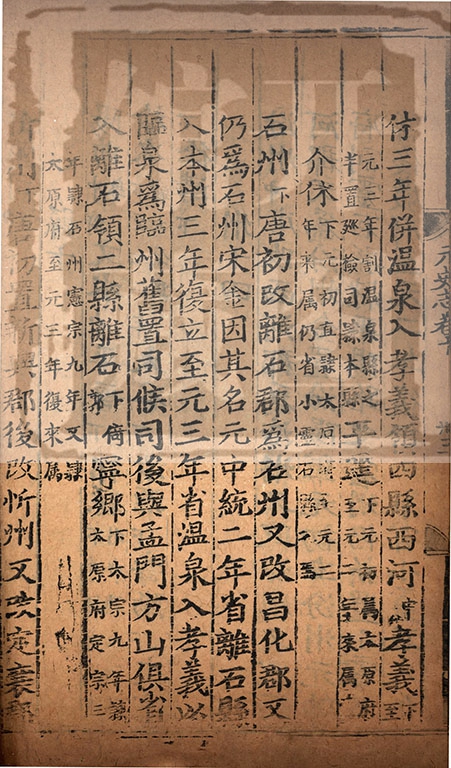 三年併温泉入孝義領四縣西河中孝義下至
元三年割温泉縣之
半置廵檢司隷本縣平遥下元初属太原府
至元二年来属
介休下元初直隷太原
年来属仍省小靈石縣入焉
石州下唐初改離石郡爲石州又改昌化郡又
仍爲石州宋金因其名元中統二年省離石縣
入本州三年復立至元三年省温泉入孝義以
臨泉爲臨州舊置司候司後與孟門方山俱省
入離石領二縣離石下倚郭寧鄉下太宗九年隷
太原府定宗三
年隷石州憲宗九年又隷
太原府至元三年復来属
州下唐初置新興郡後改忻州又改定襄郡